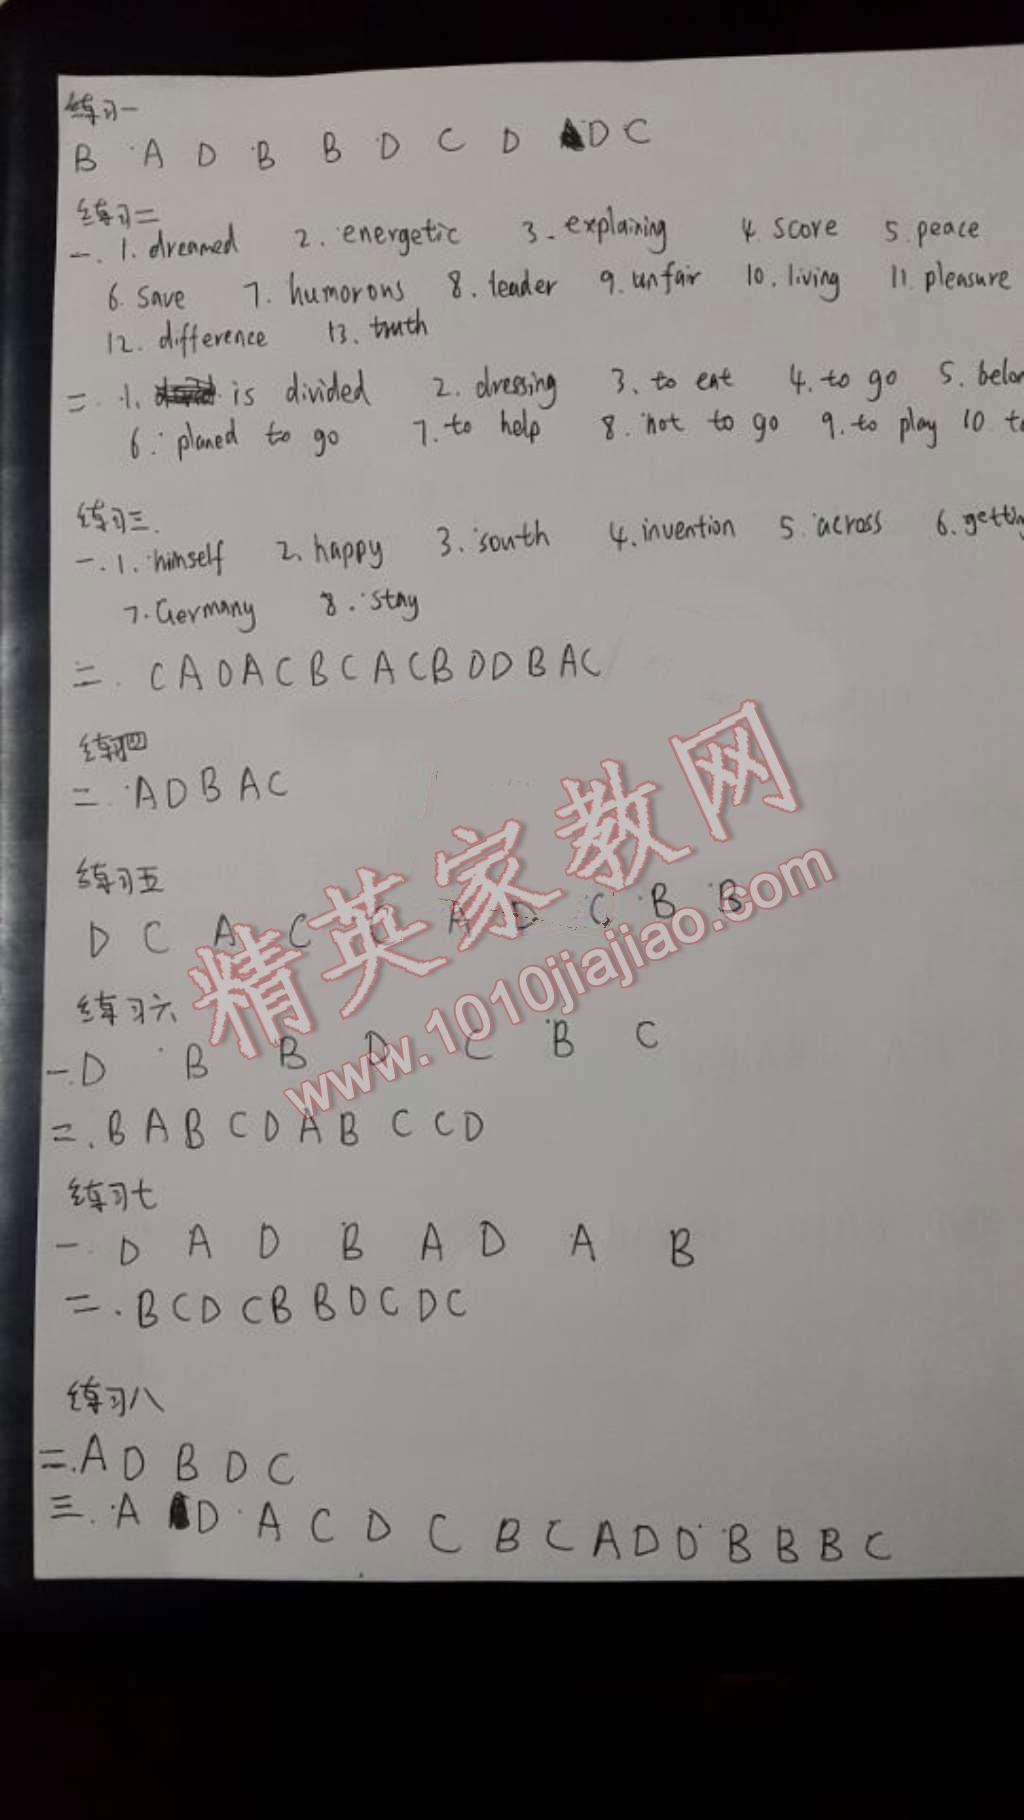 练习一
B A D B B D C D DC
练习二
一. 1. dreamed 2. energetic 3. explaining 4. score 5. peace
6. save 7. humorons 8. leader 9. unfair 10. living 11. pleasure
12. difference 13. truth
二. 1. is divided 2. dressing 3. to eat 4. to go 5.
6. planed to go 7. to help 8. not to go 9. to play 10
练习三.
一. 1. himself 2. happy 3. south 4. invention 5. across 6.
7. Germany 8. stay
二. C A D A C B C A C B D D B A C
练习四
二. A D B A C
练习五
D C A C C A D C B B
练习六
一. D B B D C B C
二. B A B C D A B C C D
练习七
一. D A D B A D A B
二. B C D C B B D C D C
练习八
二. A D B D C
三. A D A C D C B C A D D B B B C
精英家教网
www.1010jiajiao.com